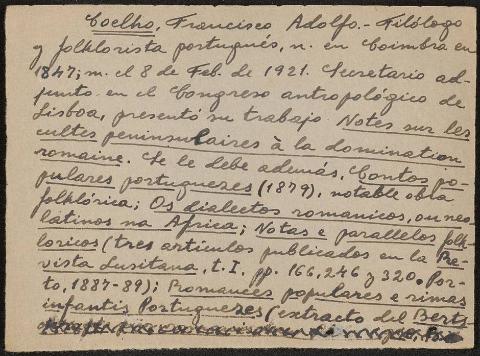 Coelho, Francisco Adolfo.- Filólogo
y folklorista portugués, n. en Coimbra en
1847; m. el 8 de Feb. de 1921. Secretario ad-
junto en el Congreso antropológico de
Lisboa, presentó su trabajo Notes sur les
cultes peninsulaires à la domination
romaine. Se le debe además, Contos po-
pulares portuguezes (1879), notable obra
folklórica; Os dialectos romanicos, ou neo
latinos na Africa; Notas e parallelos folk-
loricos (tres artículos publicados en la Re-
vista Lusitana, t. I, pp. 166, 246 y 320. Por-
to, 1887-89); Romances populares e rimas
infantis Portuguezes (extracto del Berts